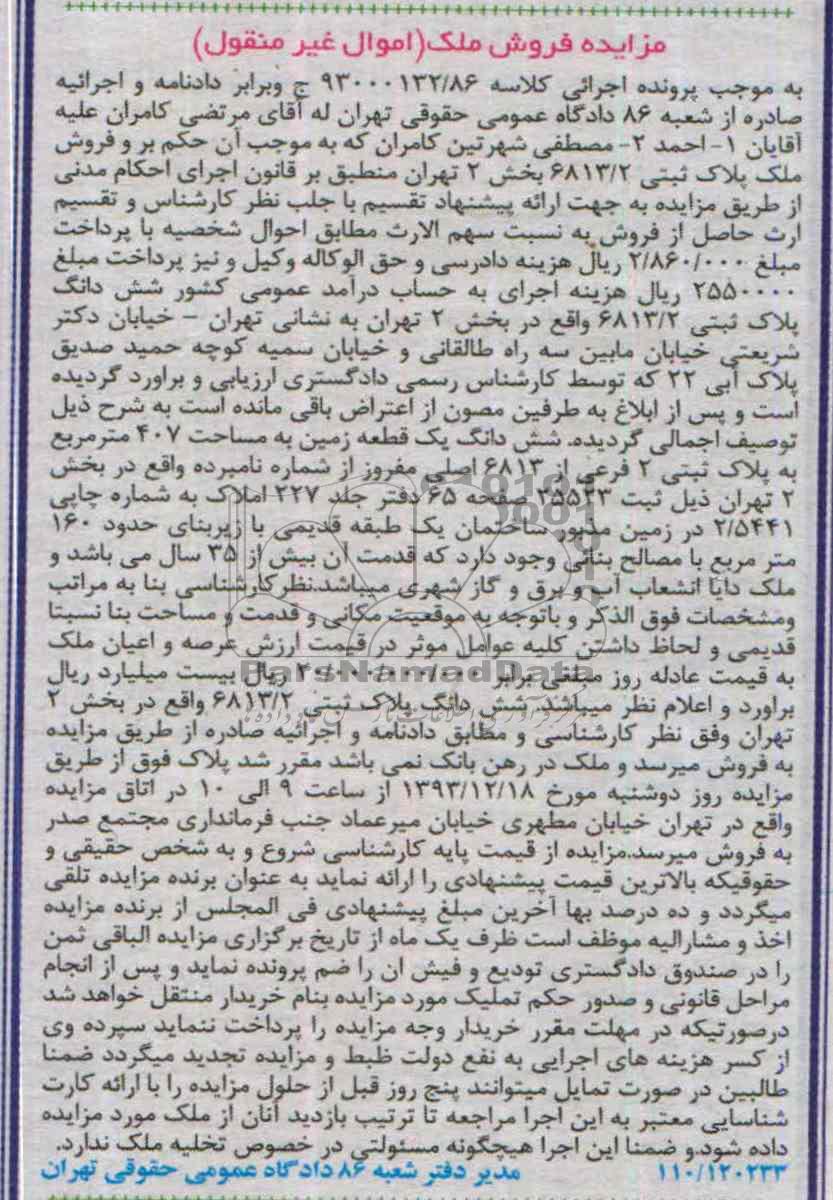 مزایده فروش ملک(اموال غیر منقول)
به موجب پرونده اجرائی کلاسه ۹۳۰۰۰۱۳۲/۸۶ ج وبرابر دادنامه و اجرائیه
صادره از شعبه ۸۶ دادگاه عمومی حقوقی تهران له آقای مرتضی کامران علیه
آقایان ۱- احمد ۲- مصطفی شهرتین کامران که به موجب آن حکم بر و فروش
ملک پلاک ثبتی ۶۸۱۳/۲ بخش ۲ تهران منطبق بر قانون اجرای احکام مدنی
از طریق مزایده به جهت ارائه پیشنهاد تقسیم با جلب نظر کارشناس و تقسیم
ارث حاصل از فروش به نسبت سهم الارث مطابق احوال شخصیه با پرداخت
مبلغ ۲/۸۶۰/۰۰۰ ریال هزینه دادرسی و حق الوکاله وکیل و نیز پرداخت مبلغ
۲۵۵۰۰۰۰ ریال هزینه اجرای به حساب درآمد عمومی کشور شش دانگ
پلاک ثبتی ۶۸۱۳/۲ واقع در بخش ۲ تهران به نشانی تهران - خیابان دکتر
شریعتی خیابان مابین سه راه طالقانی و خیابان سمیه کوچه حمید صدیق
پلاک آبی ۲۲ که توسط کارشناس رسمی دادگستری ارزیابی و براورد گردیده
است و پس از ابلاغ به طرفین مصون از اعتراض باقی مانده است به شرح ذیل
توصیف اجمالی گردیده. شش دانگ یک قطعه زمین به مساحت ۴۰۷ مترمربع
به پلاک ثبتی ۲ فرعی از ۶۸۱۳ اصلی مفروز از شماره نامبرده واقع در بخش
۲ تهران ذیل ثبت ۳۵۵۲۳ صفحه ۶۵ دفتر جلد ۲۲۷ املاک به شماره چاپی
۲/۵۴۴۱ در زمین مذبور ساختمان یک طبقه قدیمی با زیربنای حدود ۱۶۰
متر مربع با مصالح بنائی وجود دارد که قدمت آن بیش از ۳۵ سال می باشد و
ملک دایا انشعاب آب و برق و گاز شهری میباشد.نظرکارشناسی بنا به مراتب
ومشخصات فوق الذکر و باتوجه به موقعیت مکانی و قدمت و مساحت بنا نسبتا
قدیمی و لحاظ داشتن کلیه عوامل موثر در قیمت ارزش عرصه و اعیان ملک
به قیمت عادله روز مبلغی برابر ریال بیست میلیارد ریال
براورد و اعلام نظر میباشد. شش دانگ پلاک ثبتی ۶۸۱۳/۲ واقع در بخش ۲
تهران وفق نظر کارشناسی و مطابق دادنامه و اجرائیه صادره از طریق مزایده
به فروش میرسد و ملک در رهن بانک نمی باشد مقرر شد پلاک فوق از طریق
مزایده روز دوشنبه مورخ ۱۳۹۳/۱۲/۱۸ از ساعت ۹ الی ۱۰ در اتاق مزایده
واقع در تهران خیابان مطهری خیابان میرعماد جنب فرمانداری مجتمع صدر
به فروش میرسد.مزایده از قیمت پایه کارشناسی شروع و به شخص حقیقی و
حقوقیکه بالاترین قیمت پیشنهادی را ارائه نماید به عنوان برنده مزایده تلقی
میگردد و ده درصد بها آخرین مبلغ پیشنهادی فی المجلس از برنده مزایده
اخذ و مشارالیه موظف است ظرف یک ماه از تاریخ برگزاری مزایده الباقی ثمن
را در صندوق دادگستری تودیع و فیش ان را ضم پرونده نماید و پس از انجام
مراحل قانونی و صدور حکم تملیک مورد مزایده بنام خریدار منتقل خواهد شد
درصورتیکه در مهلت مقرر خریدار وجه مزایده را پرداخت ننماید سپرده وی
از کسر هزینه های اجرایی به نفع دولت ظبط و مزایده تجدید میگردد ضمنا
طالبین در صورت تمایل میتوانند پنج روز قبل از حلول مزایده را با ارائه کارت
شناسایی معتبر به این اجرا مراجعه تا ترتیب بازدید آنان از ملک مورد مزایده
داده شود.و ضمنا این اجرا هیچگونه مسئولتی در خصوص تخلیه ملک ندارد.
۱۱۰/۱۲۰۲۳۳ مدیر دفتر شعبه ۸۶ دادگاه عمومی حقوقی تهران
ParsNamadData